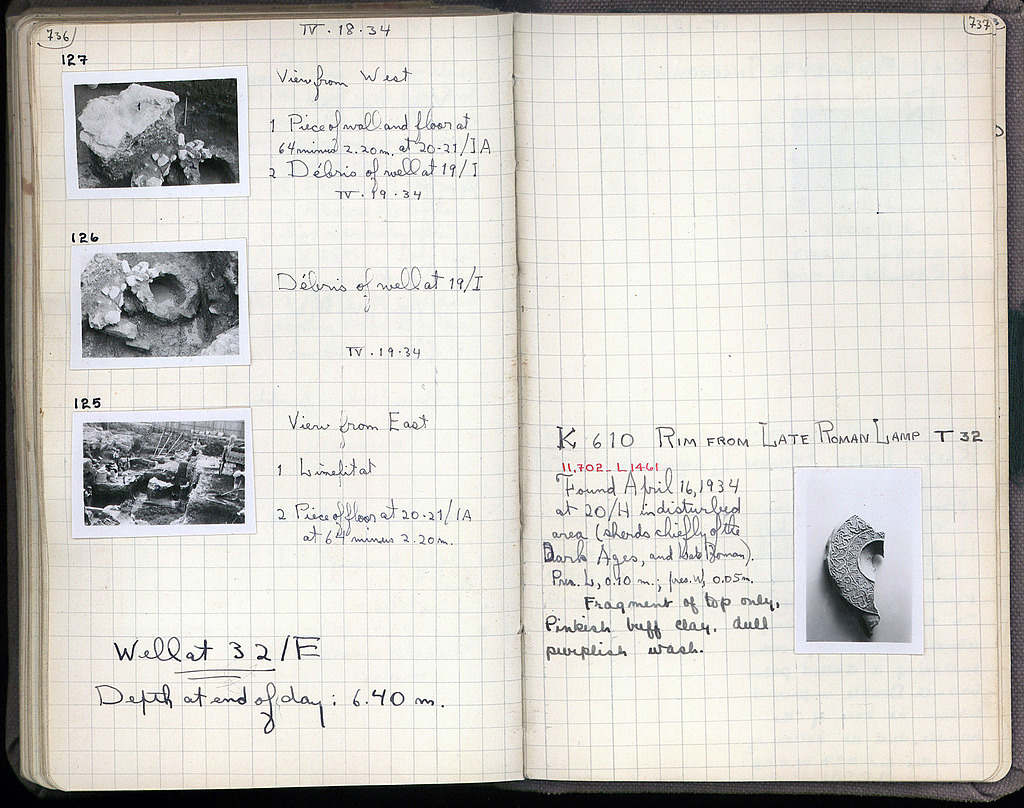 736
IV · 18 · 34
127
View from West
1 Piece of wall and floor at
64 minus 2.20m. at 20-21/IA
2 Débris of well at 19/I
IV · 19 · 34
126
Débris of well at 19/I
IV · 19 · 34
125
View from East
1 Limepit at
2 Piece of floor at 20-21/IA
at 64 minus 2.20m.
Well at 32/E
Depth at end of day: 6.40 m.
737
K 610 RIM FROM LATE ROMAN LAMP T 32
11,702 - L 1461
Found April 16, 1934
at 20/H in disturbed
area (sherds chiefly of the
Dark Ages, and Late Roman).
Pres. L, 0.10 m.; pres. W, 0.05m.
Fragment of top only,
Pinkish buff clay, dull
purplish wash.